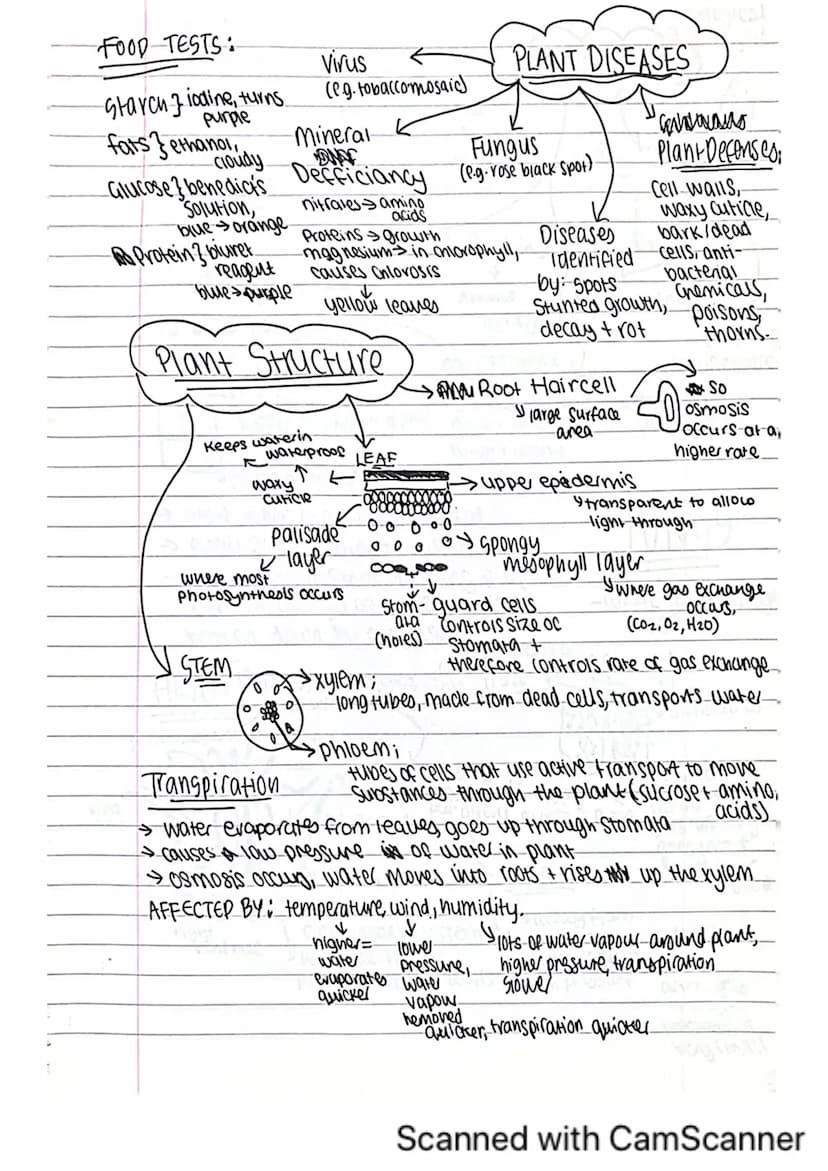 FOOD TESTS:
Starch } iodine, turns
purple
fats } ethanol,
cloudy
Glucose } benedict's
solution,
blue → orange
Protein } biuret
reagent
blue → purple
PLANT DISEASES
Virus
(e.g. tobaccomosaic)
Mineral
Defficiancy
nitrates → amino
acids
Proteins → growth
magnesium → in chlorophyll,
causes chlorosis
yellow leaves
Fungus
(e.g. rose black spot)
Diseases
identified
by: spots
stunted growth,
decay + rot
Plant Defenses;
Cell walls,
waxy cuticle,
bark/dead
cells, anti-
bacterial
chemicals,
poisons,
thorns.
Plant Structure
Root Hair cell
large surface
area
so
osmosis
occurs at a,
higher rate
LEAF
Keeps water in
waterproof
waxy
cuticle
upper epidermis
transparent to allow
light through
palisade
layer
where most
photosynthesis occurs
spongy
mesophyll layer
where gas exchange
occurs,
(CO2, O2, H2O)
Stom-
ata
(holes)
guard cells
controls size oc
stomata +
therefore controls rate of gas exchange
STEM
xylem;
long tubes, made from dead cells, transports water
phloem;
tubes of cells that use active transport to move
substances through the plant (sucrose + amino,
acids)
Transpiration
→ water evaporates from leaves, goes up through stomata
→ causes low pressure of water in plant
→ osmosis occurs, water moves into roots + rises up the xylem
AFFECTED BY: temperature, wind, humidity.
higher =
water
evaporates
quicker
lower
pressure,
water
vapour
removed
quicker, transpiration quicker
lots of water vapour around plant,
higher pressure, transpiration
slower
Scanned with CamScanner